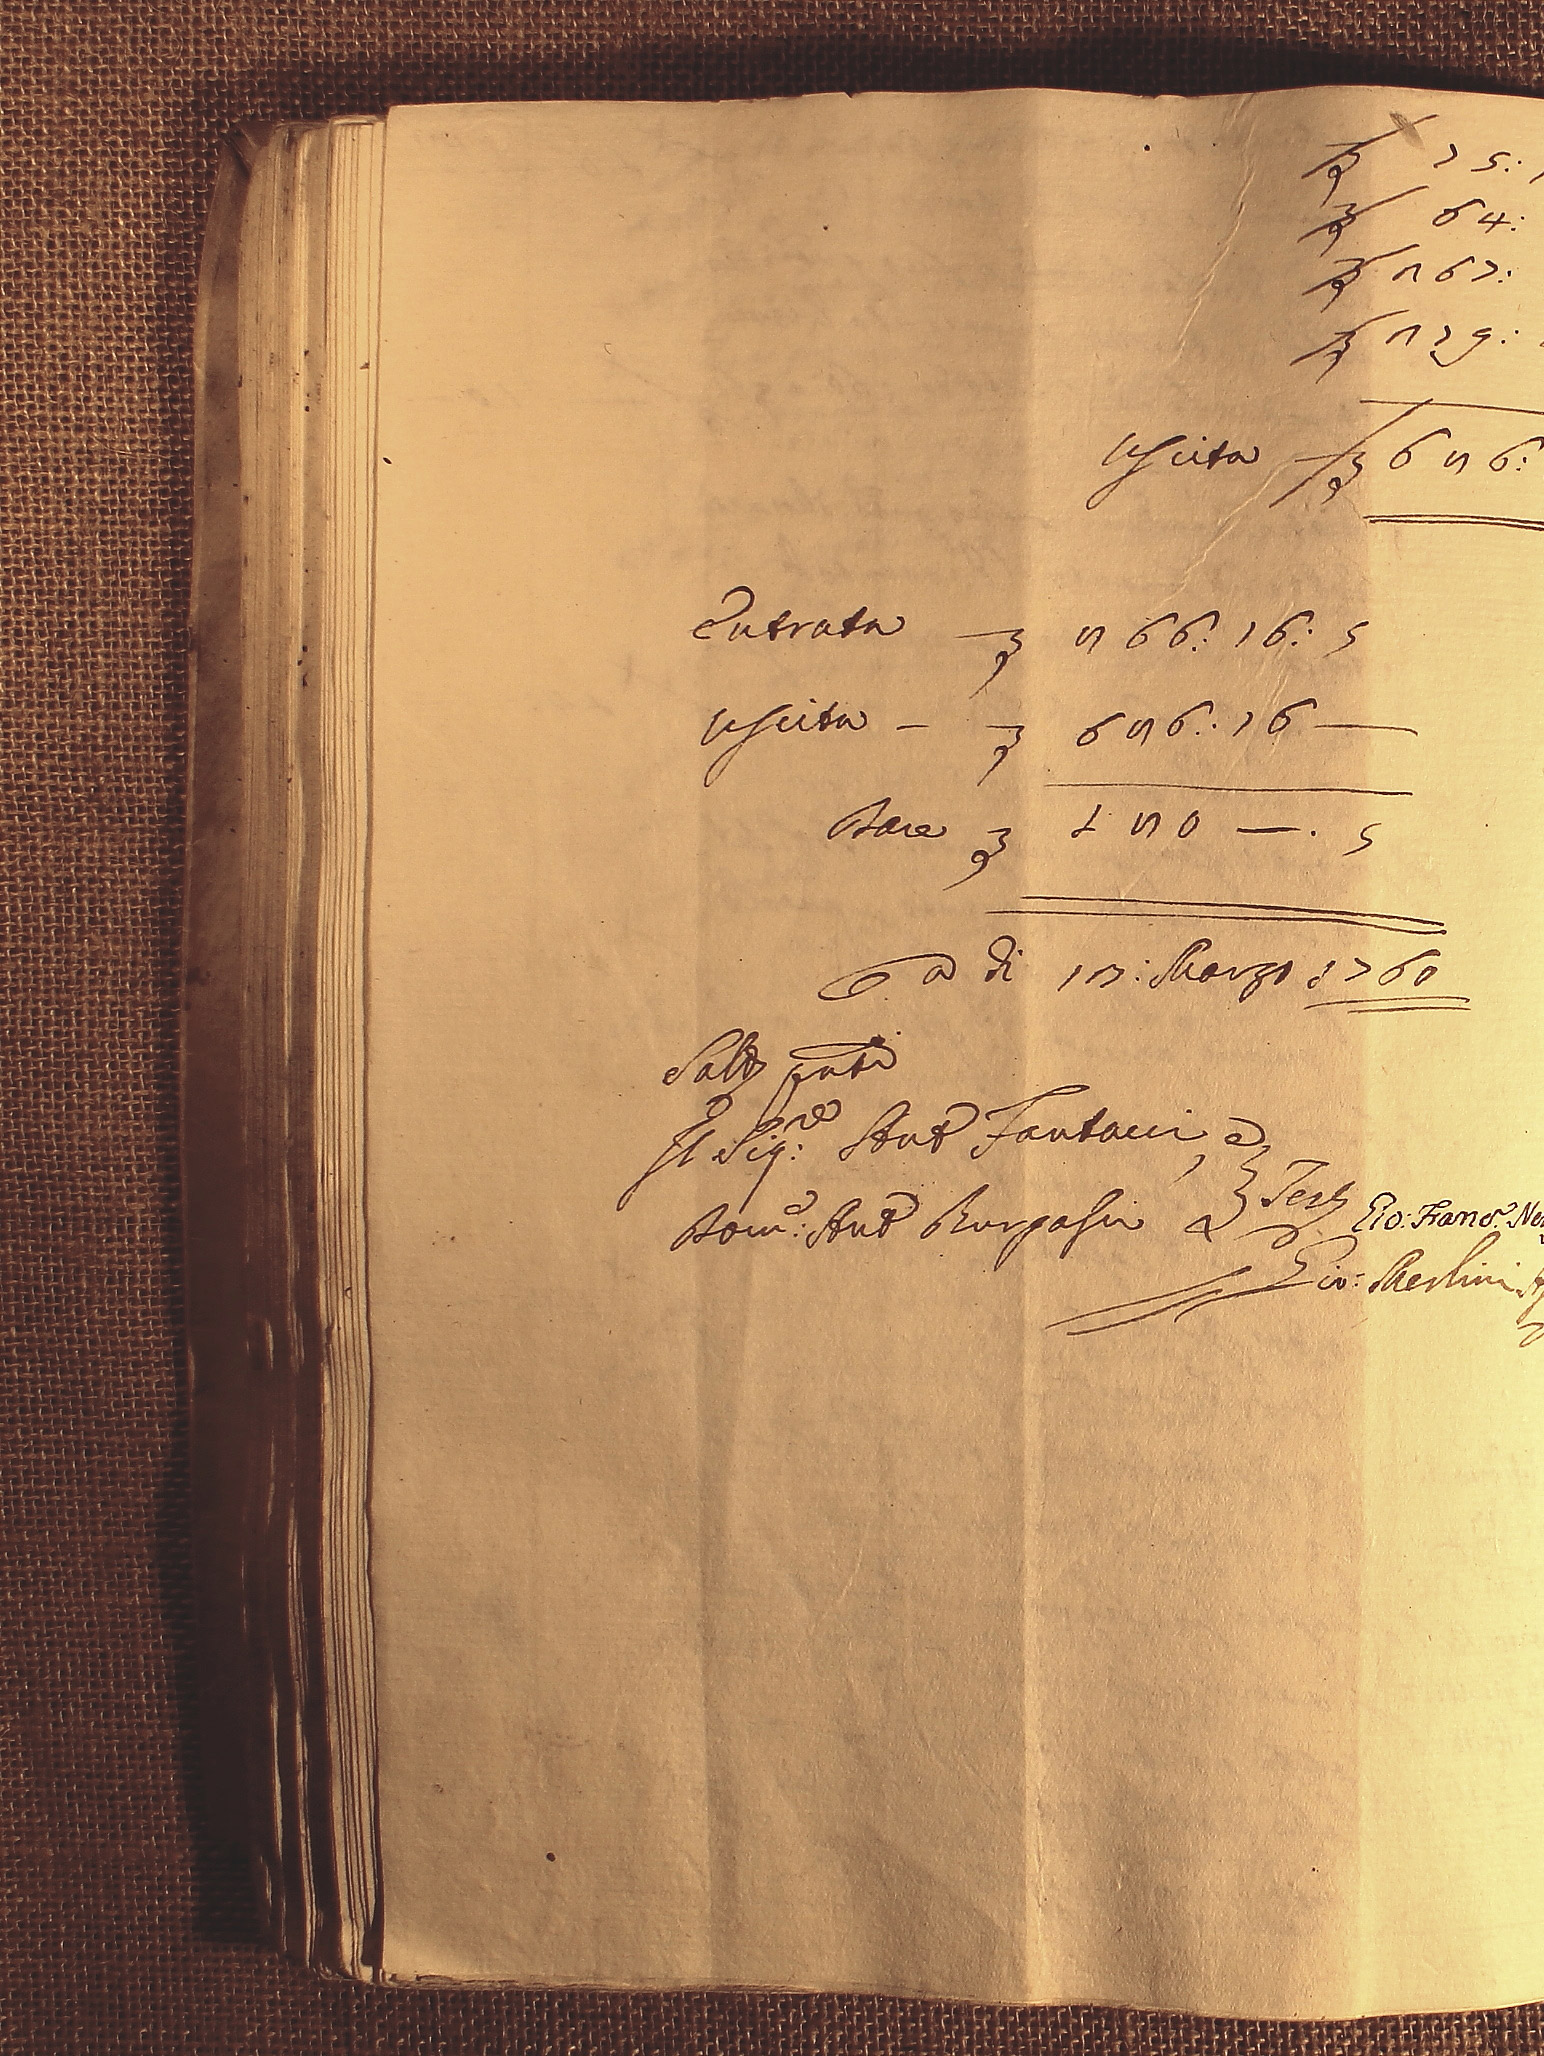 75:
64:
267:
279:
Uscita 686:
Entrata — 866: 16: 5
Uscita — 686: 16 —
Dare 180 — . 5
a di Marzo 1760
Il Sig:re Anto Fantacci e
Domo: Anto Burgassi Test
Gio: Franco. Ne
Gio: Merlini